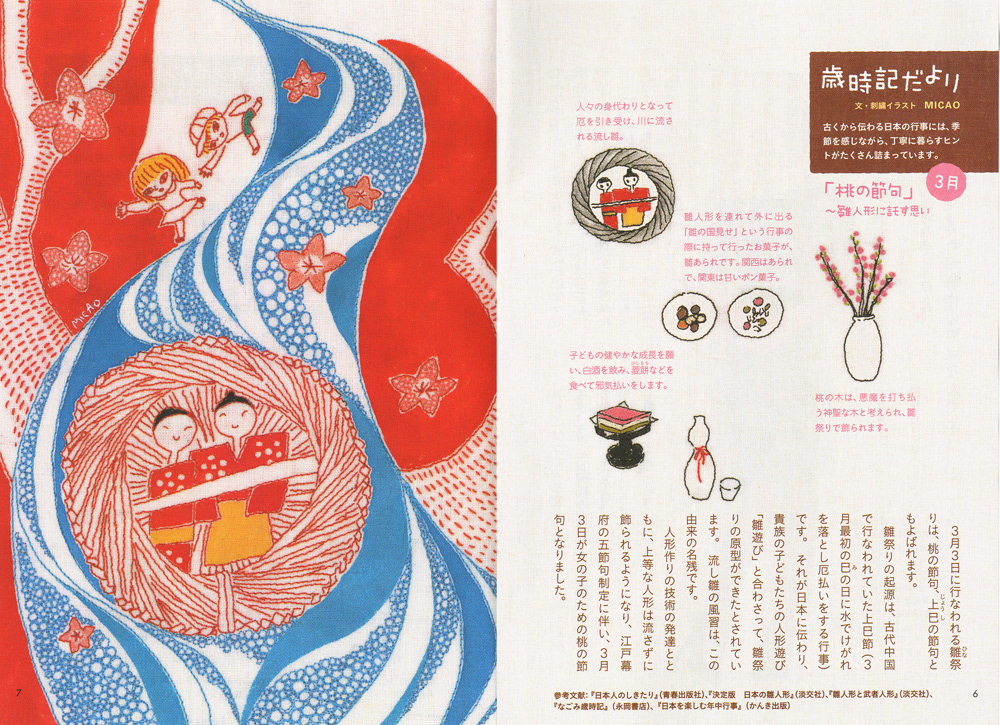 歳時記だより
文・刺繍イラスト MICAO
古くから伝わる日本の行事には、季
節を感じながら、丁寧に暮らすヒン
トがたくさん詰まっています。
3月
「桃の節句」
〜雛人形に託す思い
人々の身代わりとなって
厄を引き受け、川に流さ
れる流し雛。
雛人形を連れて外に出る
「雛の国見せ」という行事の
際に持って行ったお菓子が、
雛あられです。関西はあられ
で、関東は甘いポン菓子。
子どもの健やかな成長を願
い、白酒を飲み、菱餅などを
ひしもち
食べて邪気払いをします。
桃の木は、悪魔を打ち払
う神聖な木と考えられ、雛
祭りで飾られます。
3月3日に行なわれる雛祭
ひな
りは、桃の節句、上巳の節句と
じょうし
もよばれます。
雛祭りの起源は、古代中国
で行なわれていた上巳節(3
月最初の巳の日に水でけがれ
み
を落とし厄払いをする行事)
です。それが日本に伝わり、
貴族の子どもたちの人形遊び
「雛遊び」と合わさって、雛祭
りの原型ができたとされてい
ます。流し雛の風習は、この
由来の名残です。
人形作りの技術の発達とと
もに、上等な人形は流さずに
飾られるようになり、江戸幕
府の五節句制定に伴い、3月
3日が女の子のための桃の節
句となりました。
参考文献:『日本人のしきたり』(青春出版社)、『決定版 日本の雛人形』(淡交社)、『雛人形と武者人形』(淡交社)、
『なごみ歳時記』(永岡書店)、『日本を楽しむ年中行事』(かんき出版)
6
MICAO
7